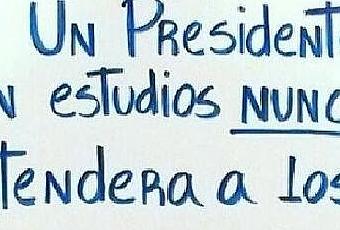 Un President
n estudios nunc
tendera a los